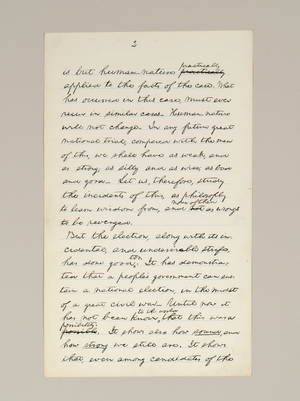 2
is but human nature practically practically
applied to the facts of the case. What
has occurred in this case, must ever
recur in similar cases. Human nature
will not change. In any future great
national trial, compared with the men
of this, we shall have as weak, and
as strong; as silly and as wise; as bad
and good. Let us, therefore, study
the incidents of this, as philosophy
to learn wisdom from, and none of them not as wrongs
to be revenged.
But the election, along with its in-
cidental, and undesirable strife,
has done good, too. It has demonstra-
ted that a people's government can sus-
tain a national election, in the midst
of a great civil war. Until now it
has not been known to the world that this was a
possibility possible. It shows also how sound, and
how strong we still are. It shows
that, even among candidates of the